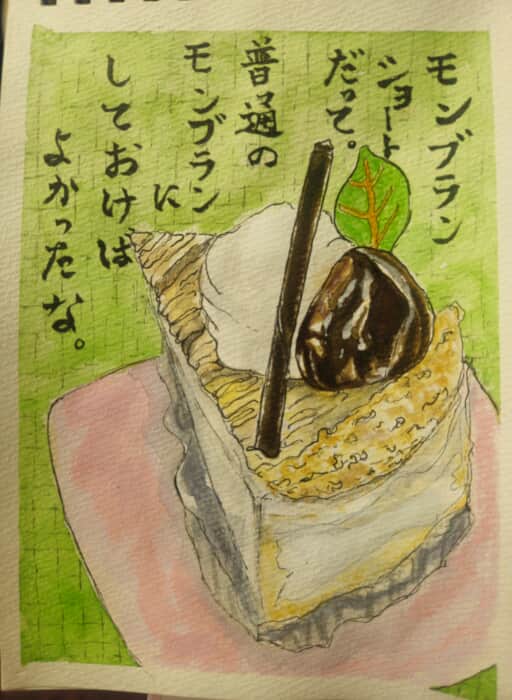 モンブラン
ショート
だって。
普通の
モンブラン
に
しておけば
よかったな。